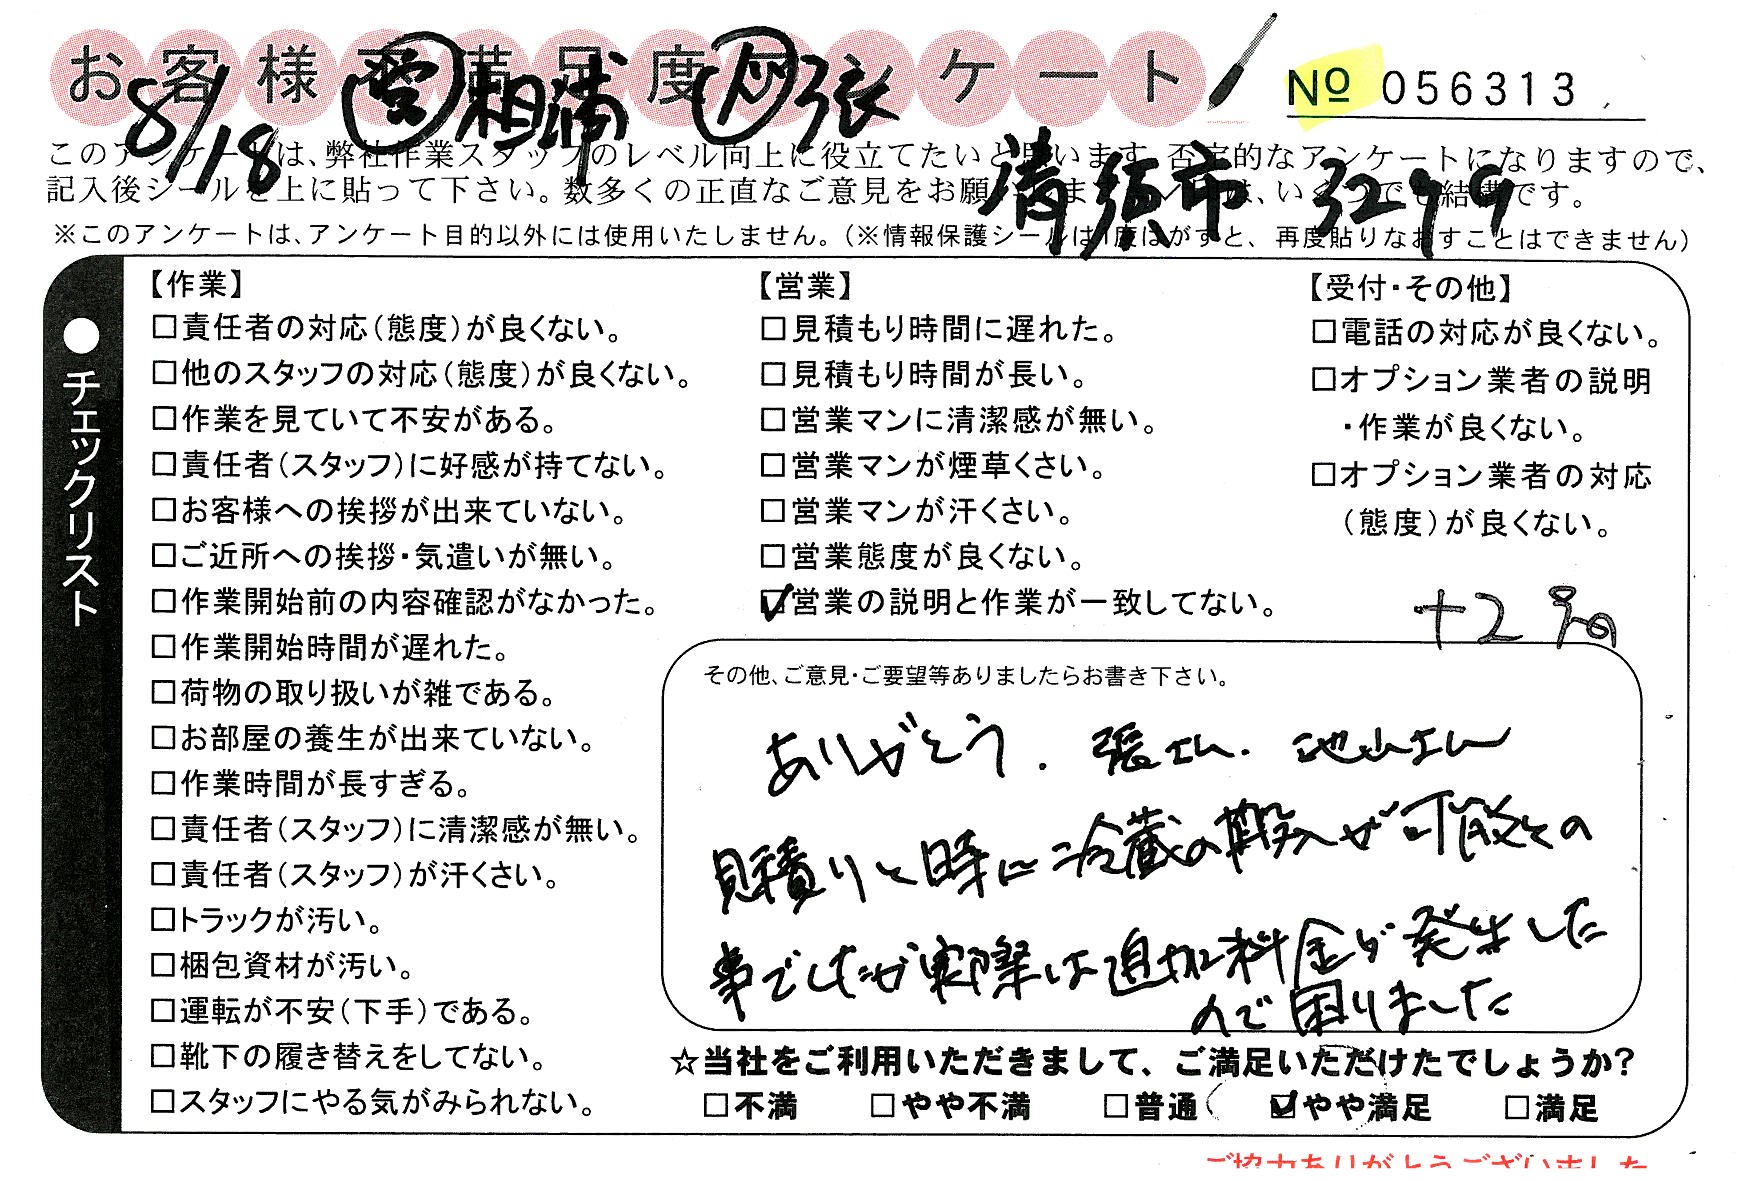 お客様不満足度アンケート
No 056313
8/18 営 相浦 作 張
清須市 3279
このアンケートは、弊社作業スタッフのレベル向上に役立てたいと思います。否定的なアンケートになりますので、
記入後シールを上に貼って下さい。数多くの正直なご意見をお願いします。いくつでも結構です。
※このアンケートは、アンケート目的以外には使用いたしません。(※情報保護シールは1度はがすと、再度貼りなおすことはできません)
●チェックリスト
【作業】
□責任者の対応(態度)が良くない。
□他のスタッフの対応(態度)が良くない。
□作業を見ていて不安がある。
□責任者(スタッフ)に好感が持てない。
□お客様への挨拶が出来ていない。
□ご近所への挨拶・気遣いが無い。
□作業開始前の内容確認がなかった。
□作業開始時間が遅れた。
□荷物の取り扱いが雑である。
□お部屋の養生が出来ていない。
□作業時間が長すぎる。
□責任者(スタッフ)に清潔感が無い。
□責任者(スタッフ)が汗くさい。
□トラックが汚い。
□梱包資材が汚い。
□運転が不安(下手)である。
□靴下の履き替えをしてない。
□スタッフにやる気がみられない。
【営業】
□見積もり時間に遅れた。
□見積もり時間が長い。
□営業マンに清潔感が無い。
□営業マンが煙草くさい。
□営業マンが汗くさい。
□営業態度が良くない。
☑営業の説明と作業が一致してない。
【受付・その他】
□電話の対応が良くない。
□オプション業者の説明
・作業が良くない。
□オプション業者の対応
(態度)が良くない。
+2
その他、ご意見・ご要望等ありましたらお書き下さい。
ありがとう. 張さん. 池山さん
見積りと時に冷蔵の搬入が可能との
事でしたが実際は追加料金が発生した
ので困りました
☆当社をご利用いただきまして、ご満足いただけたでしょうか?
□不満 □やや不満 □普通 ☑やや満足 □満足
ご協力ありがとうございました